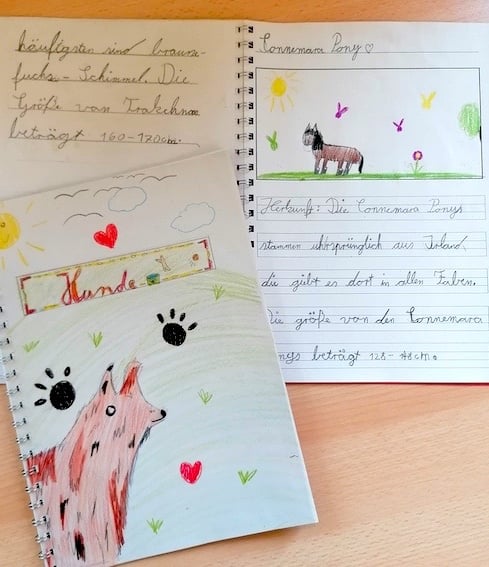 häufigsten sind braune-
fuchs-Schimmel. Die
Größe van
beträgt 160-170cm.
Connemara Pony
Herkunft: Die Connemara Ponys
stammen uhrsprünglich aus Irland,
die giebt es dort in allen Faben.
Die größe von den Connemara
onys beträgt
Hunde